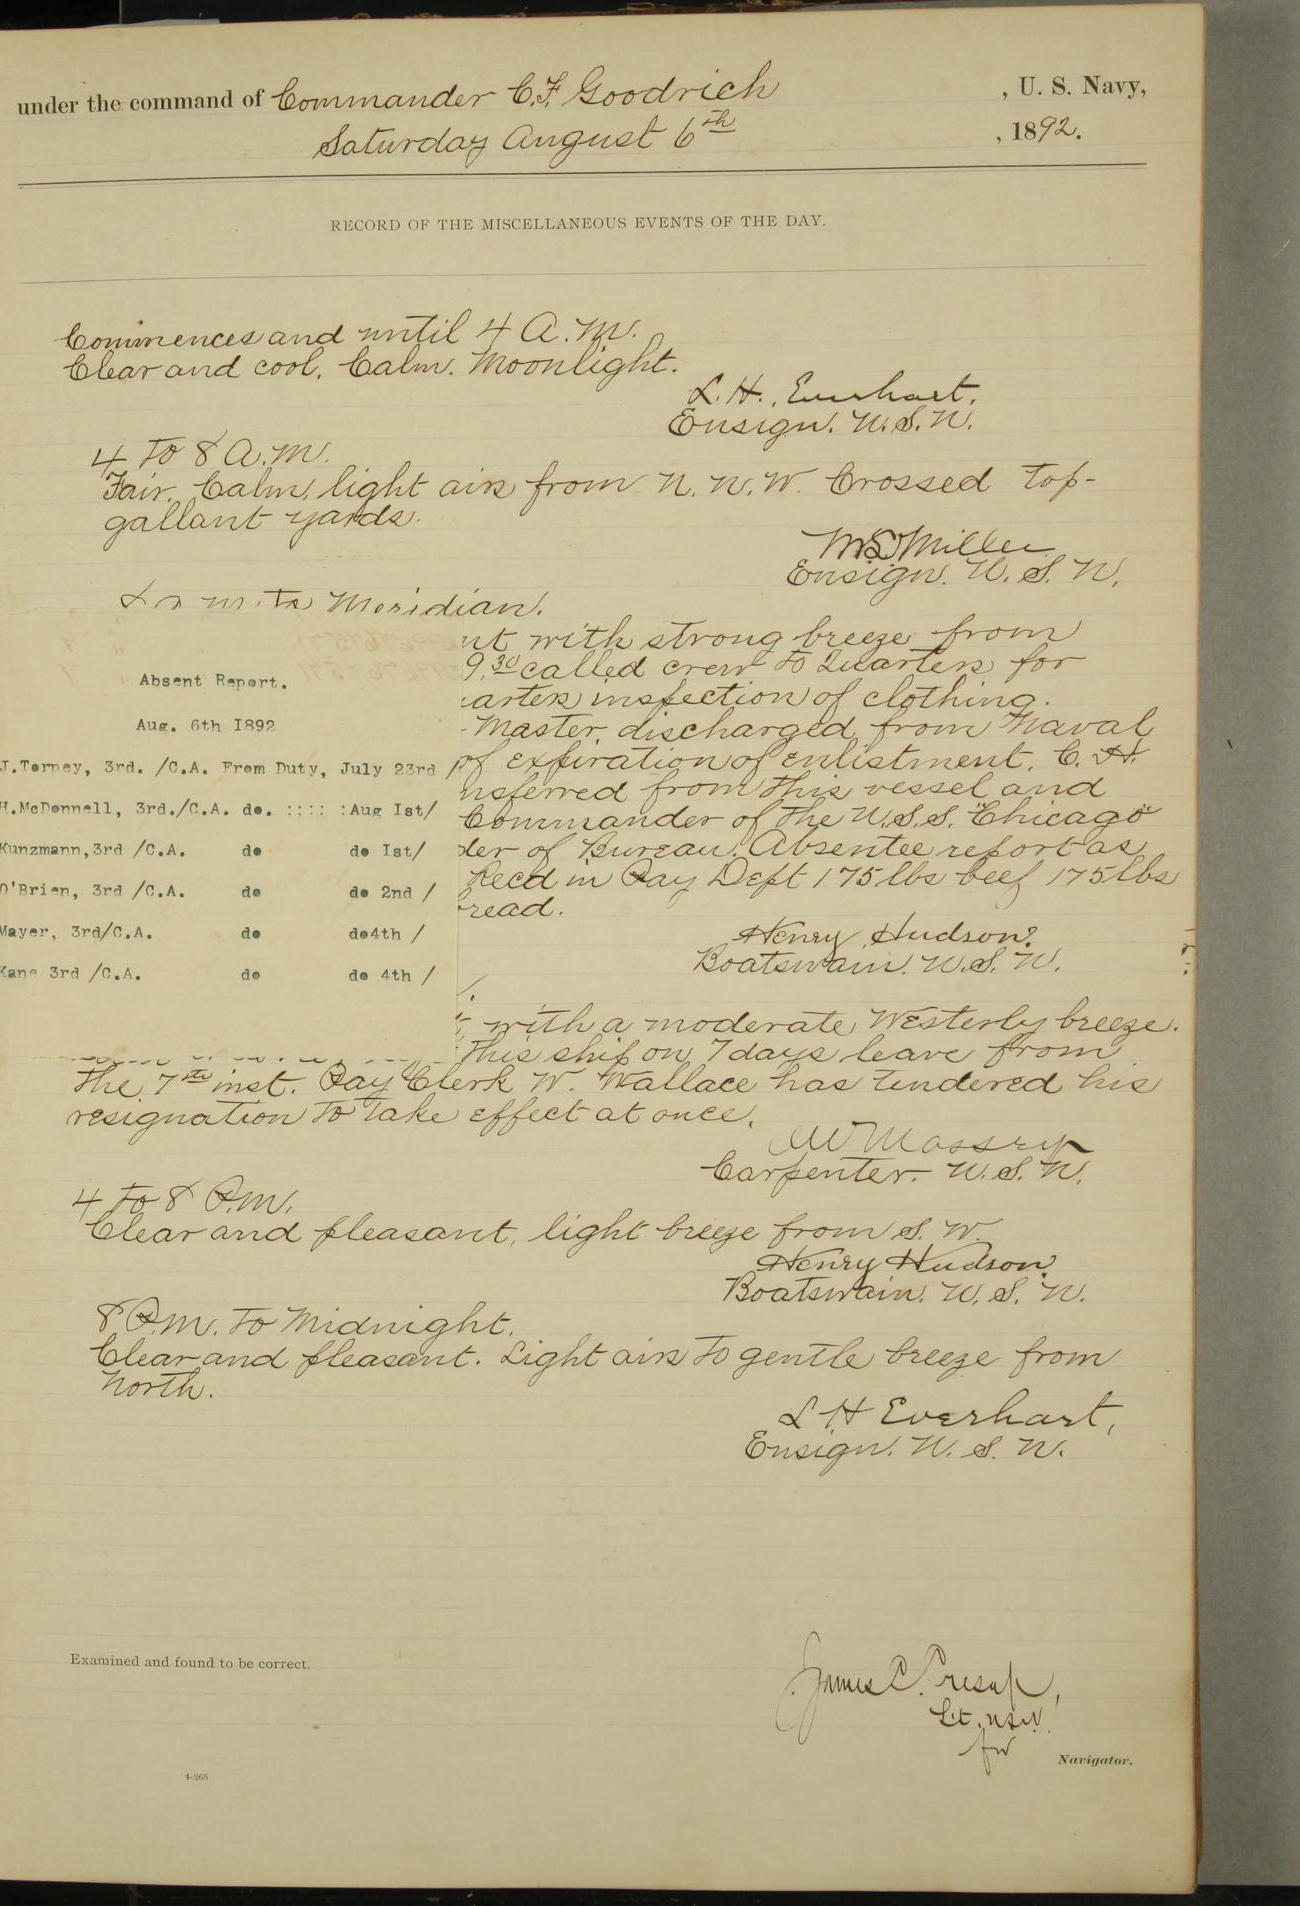 under the command of Commander C.F. Goodrich , U. S. Navy,
Saturday August 6th , 1892.
RECORD OF THE MISCELLANEOUS EVENTS OF THE DAY.
Commences and until 4 A.M.
Clear and cool. Calm. Moonlight.
L. H. Everhart.
Ensign. U.S.N.
4 to 8 A.M.
Fair. Calm, light airs from N. N. W. Crossed top-
gallant yards.
M S Miller
Ensign. U. S. N.
Meridian.
with strong breeze from
9.30 called crew to Quarters for
inspection of clothing.
Master, discharged from Naval
of expiration of enlistment. C. H.
from this vessel and
Commander of the U.S.S. "Chicago"
of Bureau. Absentee report as
Recd in Pay Dept 175 lbs beef 175 lbs
read.
Henry Hudson.
Boatswain. U.S. N.
Absent Report.
Aug. 6th I892
J.Torney, 3rd. /C.A. From Duty, July 23rd /
H.McDonnell, 3rd./C.A. do. :::: :Aug Ist/
Kunzmann,3rd /C.A. do do Ist/
O'Brien, 3rd /C.A. do do 2nd /
Mayer, 3rd/C.A. do do4th /
Kane 3rd /C.A. do do 4th /
with a moderate Westerly breeze.
this ship on 7 days leave from
the 7th inst. Pay Clerk W. Wallace has tendered his
resignation to take effect at once.
Carpenter. U. S. N.
4 to 8 P.M.
Clear and pleasant, light breeze from S. W.
Henry Hudson.
Boatswain. U. S. N.
8 P.M. to Midnight.
Clear and pleasant. Light airs to gentle breeze from
North.
L H Everhart,
Ensign. U. S. N.
Examined and found to be correct.
James C. Cresap,
Lt. USN.
for
Navigator.
4-265